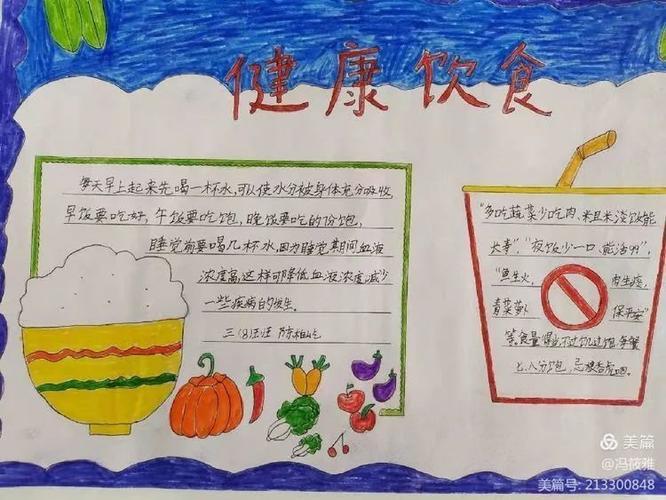 健康饮食
每天早上起来先喝一杯水,可以使水分被身体充分吸收,
早饭要吃好,午饭要吃饱,晚饭要吃的份饱,
睡觉前要喝几杯水,因为睡觉期间血液
浓度高,这样可降低血液浓度,减少
一些疾病的发生。
三(8)班
"多吃蔬菜少吃肉、粗米淡饭能
夫寿","夜饭少一口、能活99",
"鱼生火,肉生痰,
青菜萝卜保平安"
等,食量
七、八分饱,忌
美篇
@冯筱雅
美篇号: 213300848